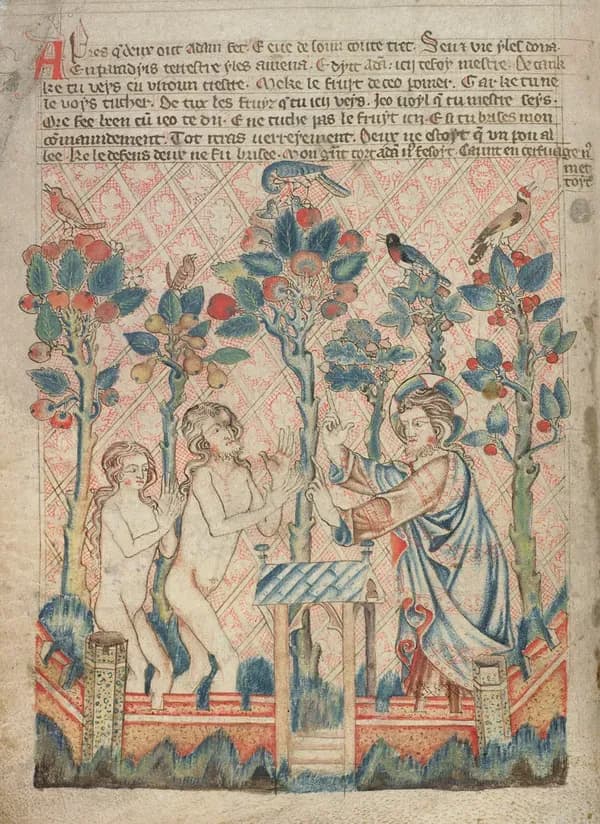 Apres q deux out adam fet. E eve de soun couste tret. Sen & vie yles dona.
E en paradyis terrestre yles amena. E dyt ada: icy te soy mestre. De tank
ke tu veys en viroun cestre. Meke le fruyt de ceo pomer. Gar ke tu ne
le voys tucher. De tux les fruyz q tu icy veys. Jeo voyl q tu mestre seys.
Ore fee ben cu jeo te di. E ne tuche pas le fruyt ici. E si tu brises mon
comaundement. Tot irras verreyement. Deux ne estoyt q un pou al
lee. Ke le defens deux ne fu brisee. & on graunt tort ada
met
toyt